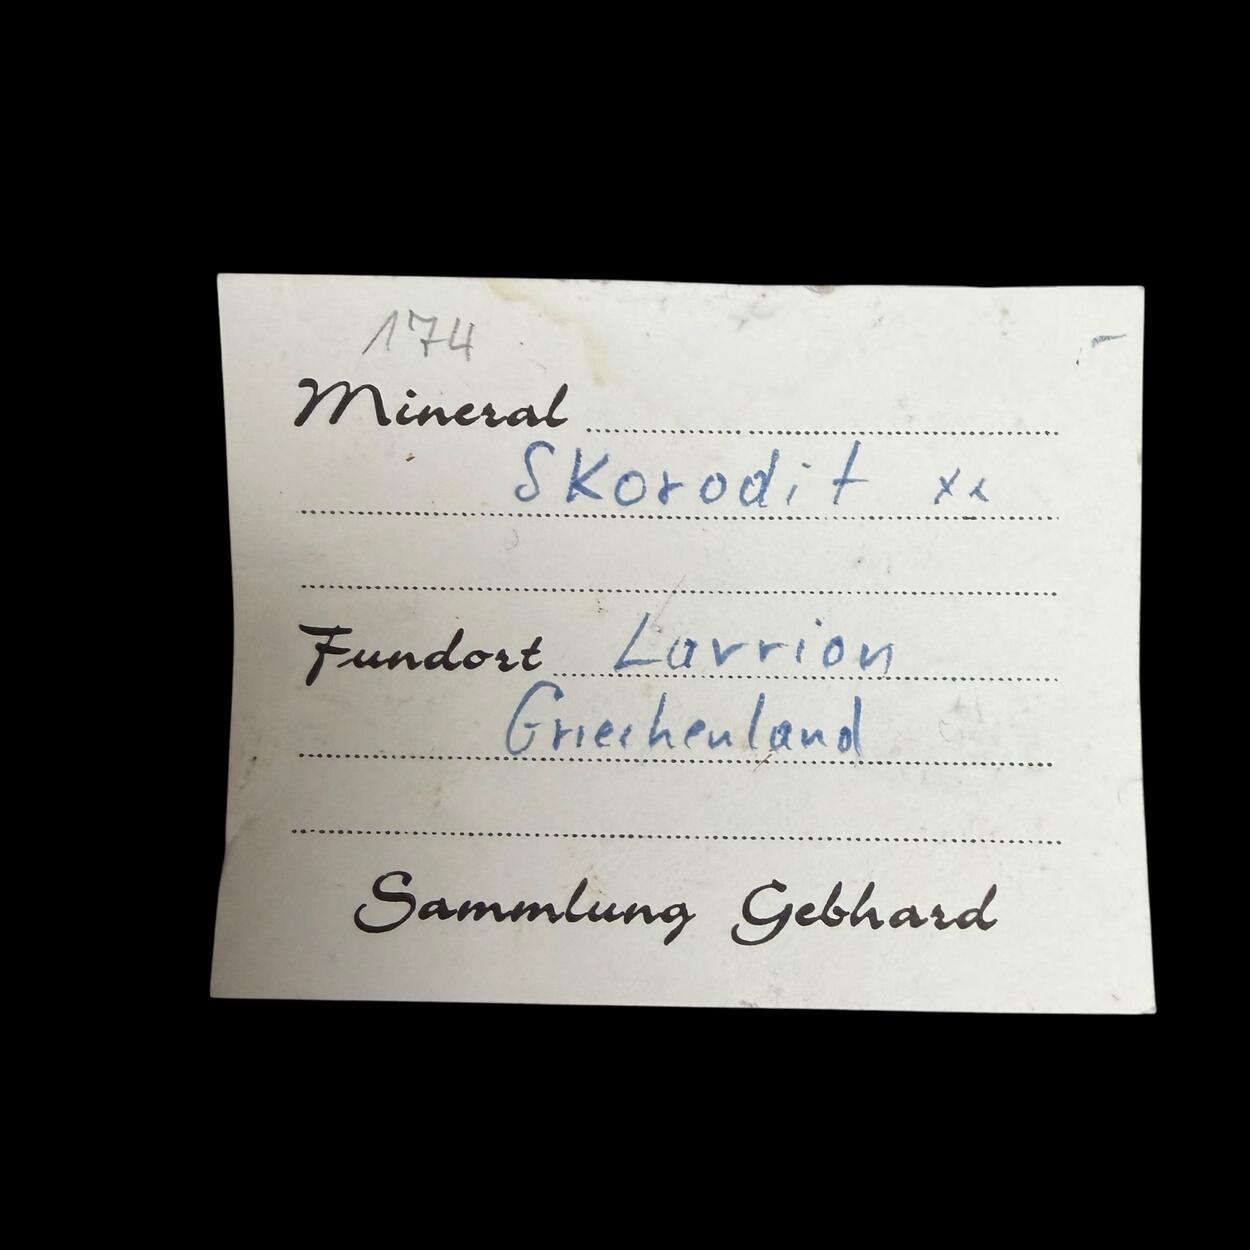 174
Mineral
Skorodit xx
Fundort Lavrion
Griechenland
Sammlung Gebhard